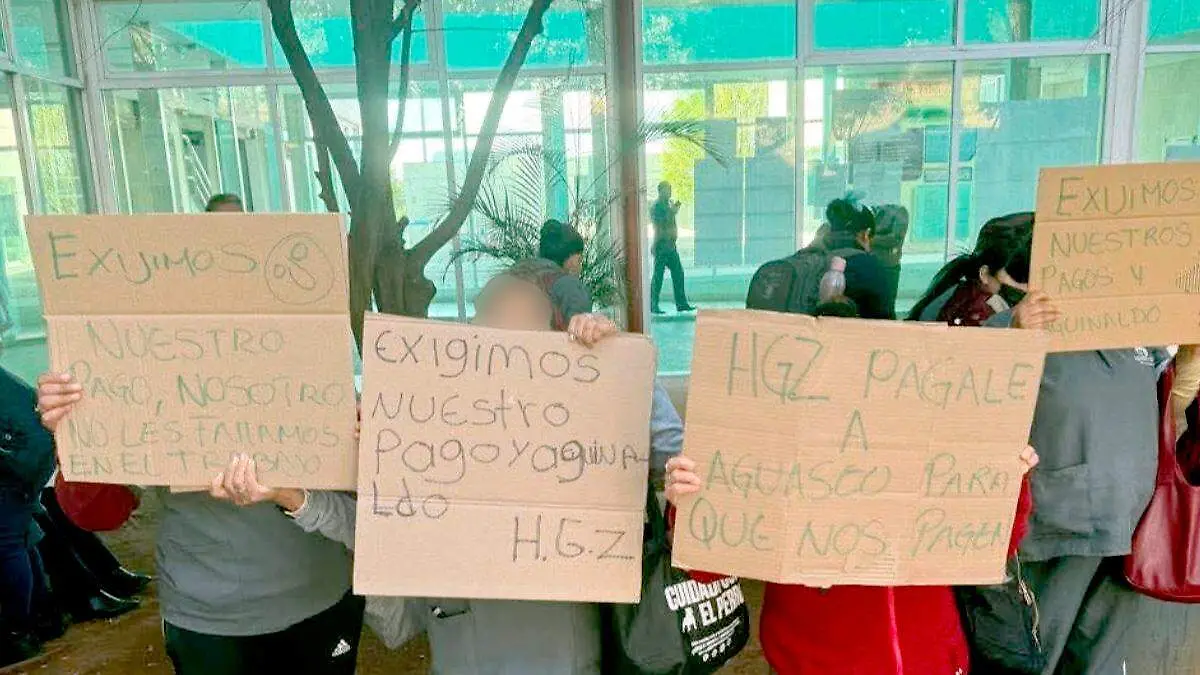 EXUJIMOS
NUESTRO
PAGO, NOSOTRO
NO LES FALLAMOS
EN EL TRABAJO
EXIGIMOS
NUESTRO
PAGO Y AGUINA
LDO
H.G.Z
HGZ PAGALE
A
AGUASCO PARA
QUE NOS PAGEN
EXUJIMOS
NUESTROS
PAGOS Y
AGUINALDO
CUIDADO CON
EL PERRO
adidas